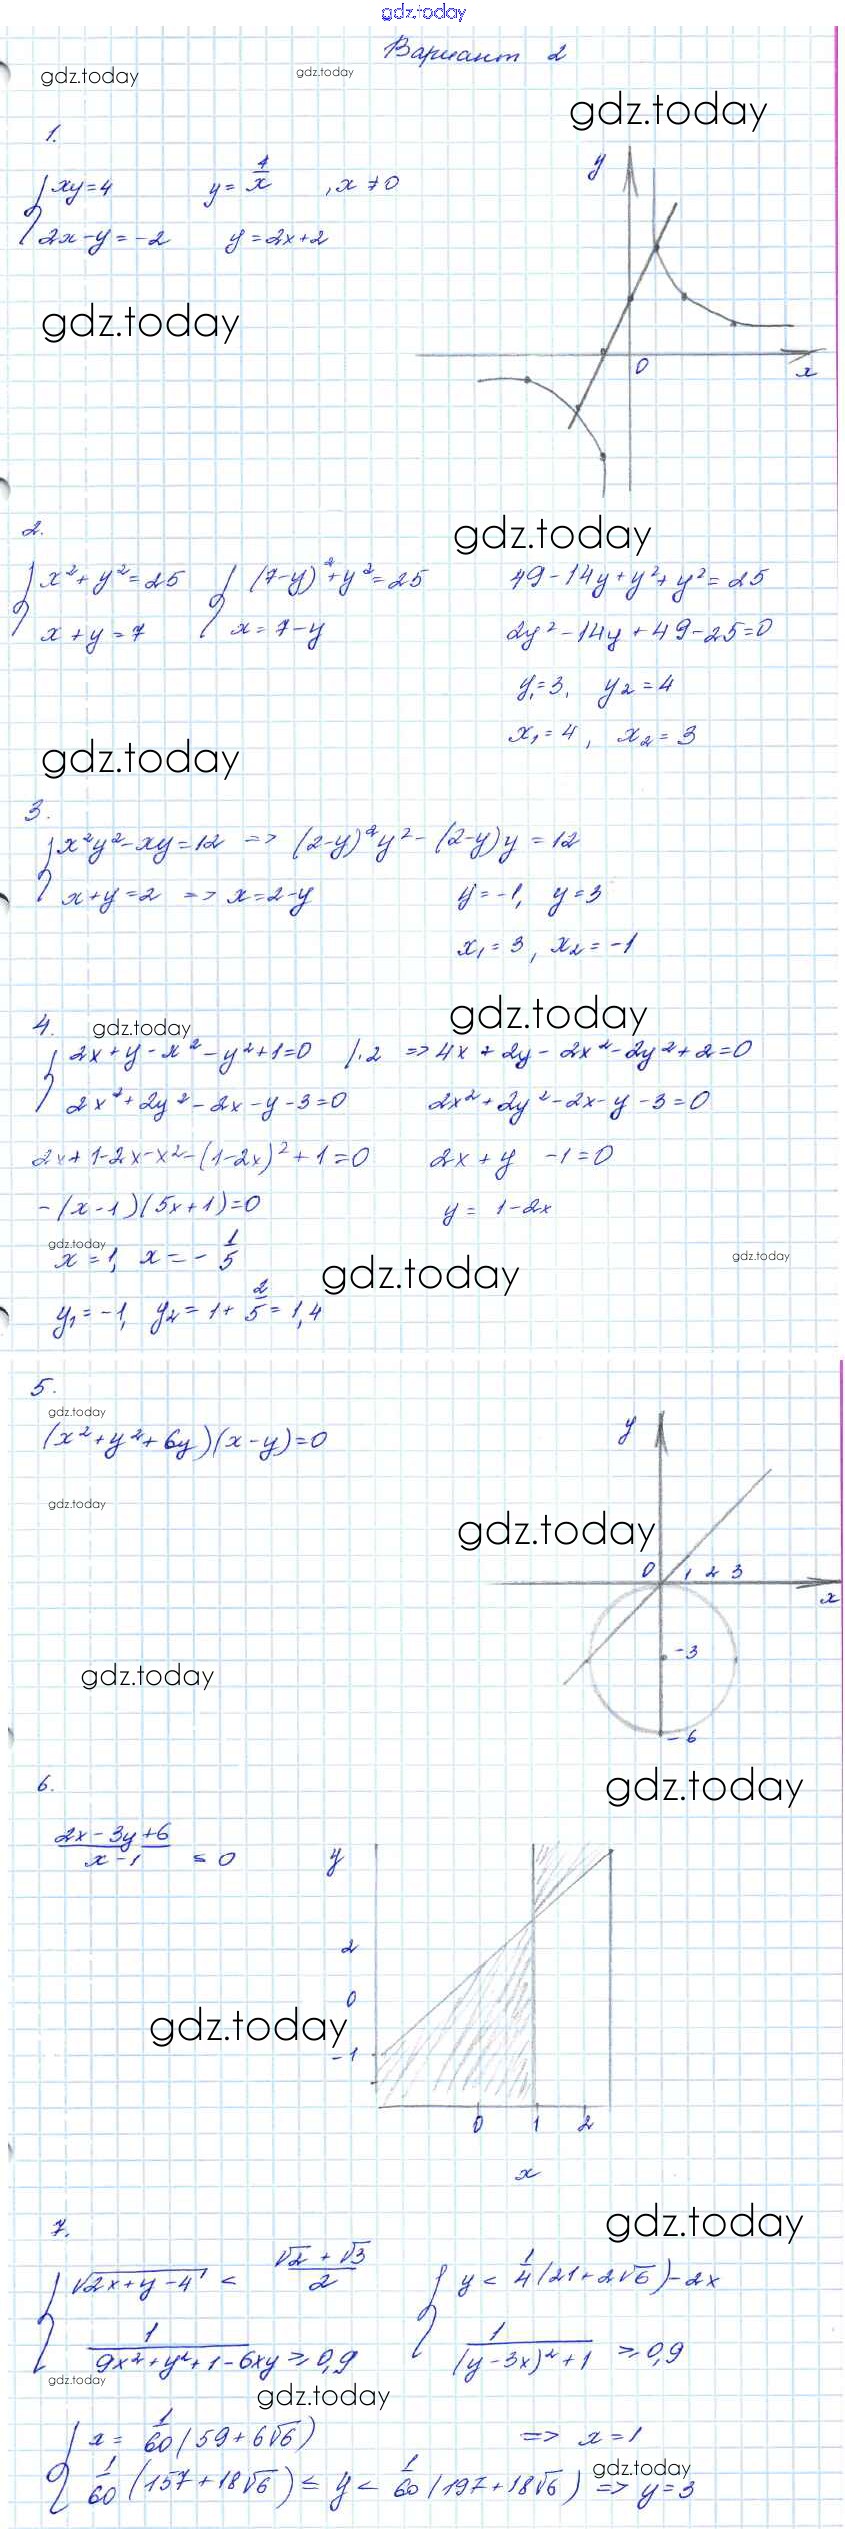 gdz.today
Вариант 2
gdz.today
gdz.today
gdz.today
1.
{ xy=4 y= 4/x , x≠0
2x-y=-2 y=2x+2
y
0
x
gdz.today
2.
gdz.today
{ x²+y²=25 { (7-y)²+y²=25 49-14y+y²+y²=25
x+y=7 x=7-y 2y²-14y+49-25=0
y₁=3, y₂=4
x₁=4, x₂=3
gdz.today
3.
{ x²y²-xy=12 => (2-y)²y²-(2-y)y=12
x+y=2 => x=2-y y=-1, y=3
x₁=3, x₂=-1
gdz.today
4. gdz.today
{ 2x+y-x²-y²+1=0 /·2 => 4x+2y-2x²-2y²+2=0
2x²+2y²-2x-y-3=0 2x²+2y²-2x-y-3=0
2x+1-2x-x²-(1-2x)²+1=0 2x+y -1=0
-(x-1)(5x+1)=0 y= 1-2x
gdz.today
x=1, x=-1/5
gdz.today
gdz.today
y₁=-1, y₂=1+2/5=1,4
5.
gdz.today
(x²+y²+6y)(x-y)=0
gdz.today
gdz.today
y
0 1 2 3
x
-3
-6
gdz.today
6.
gdz.today
(2x-3y+6)/(x-1) ≤ 0
y
2
0
-1
0 1 2
x
gdz.today
7.
gdz.today
{ √(2x+y-4) < (√2+√3)/2 { y < 1/4(21+2√6)-2x
1/(9x²+y²+1-6xy) ≥ 0,9 1/((y-3x)²+1) ≥ 0,9
gdz.today
gdz.today
{ x= 1/60(59+6√6) => x=1
gdz.today
1/60(157+18√6) ≤ y < 1/60(197+18√6) => y=3